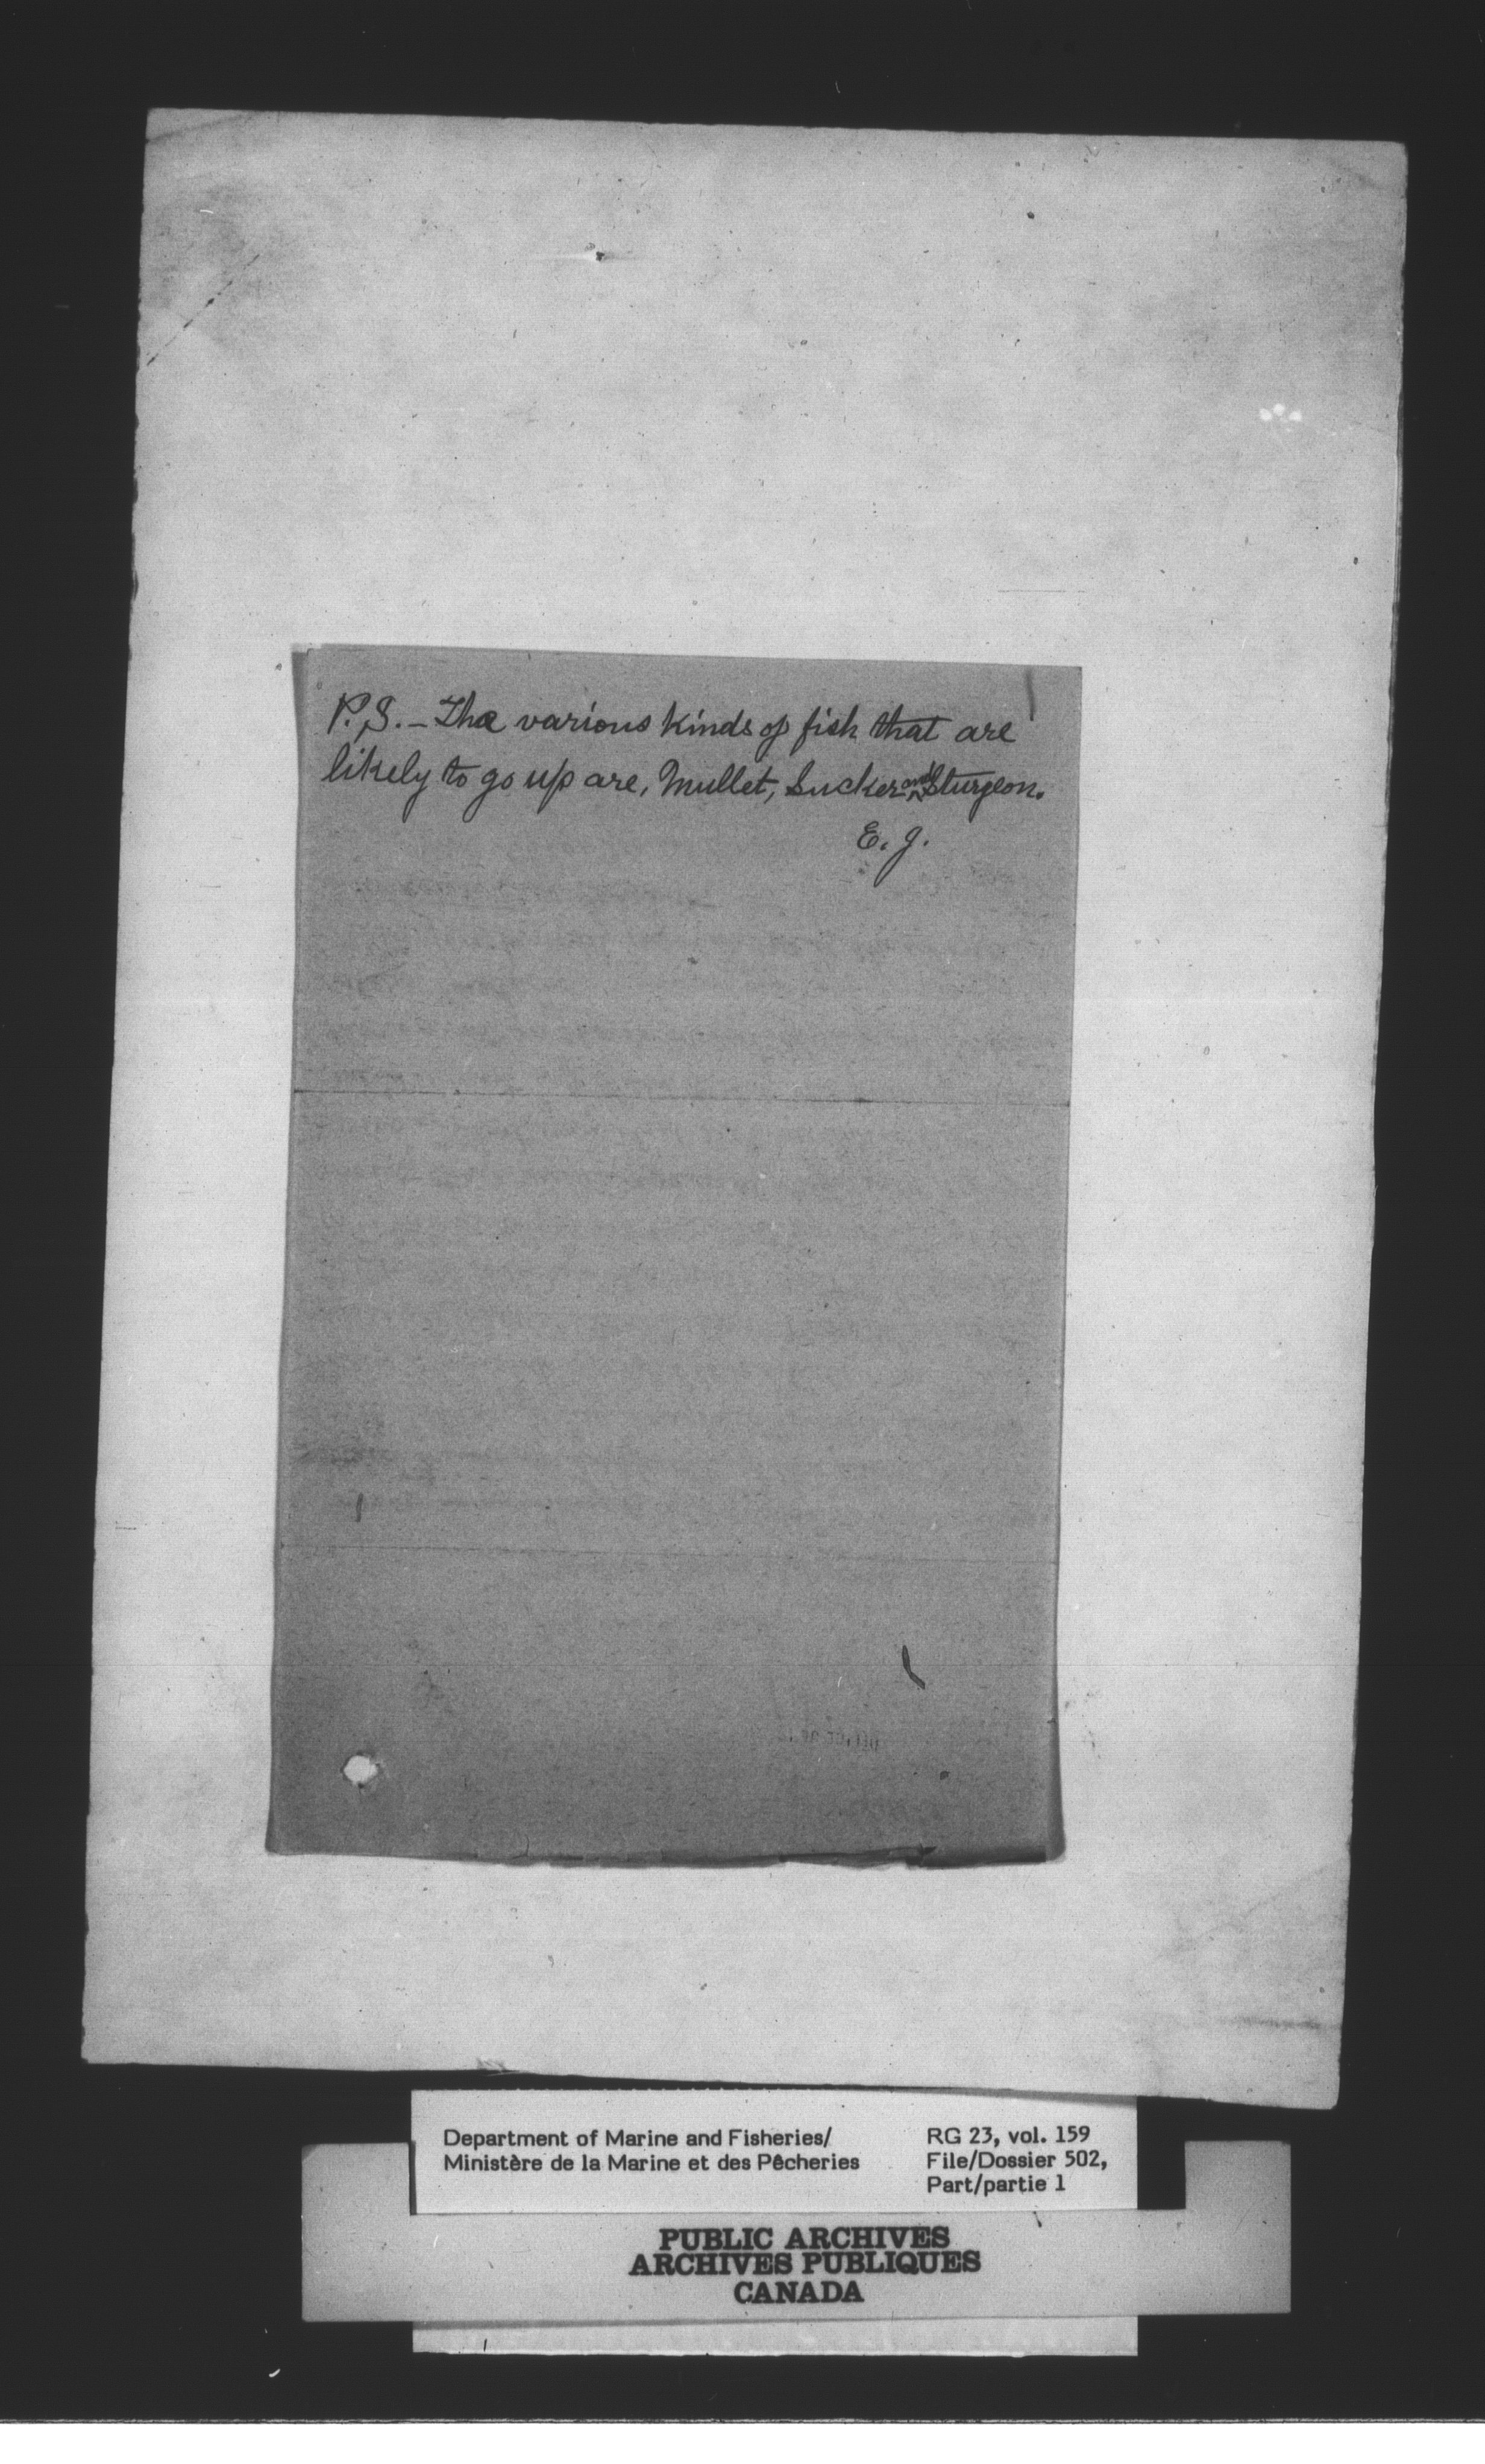 P.S. – The various kinds of fish that are
likely to go up are, Mullet, Sucker and Sturgeon.
E. J.
Department of Marine and Fisheries/
Ministère de la Marine et des Pêcheries
RG 23, vol. 159
File/Dossier 502,
Part/partie 1
PUBLIC ARCHIVES
ARCHIVES PUBLIQUES
CANADA